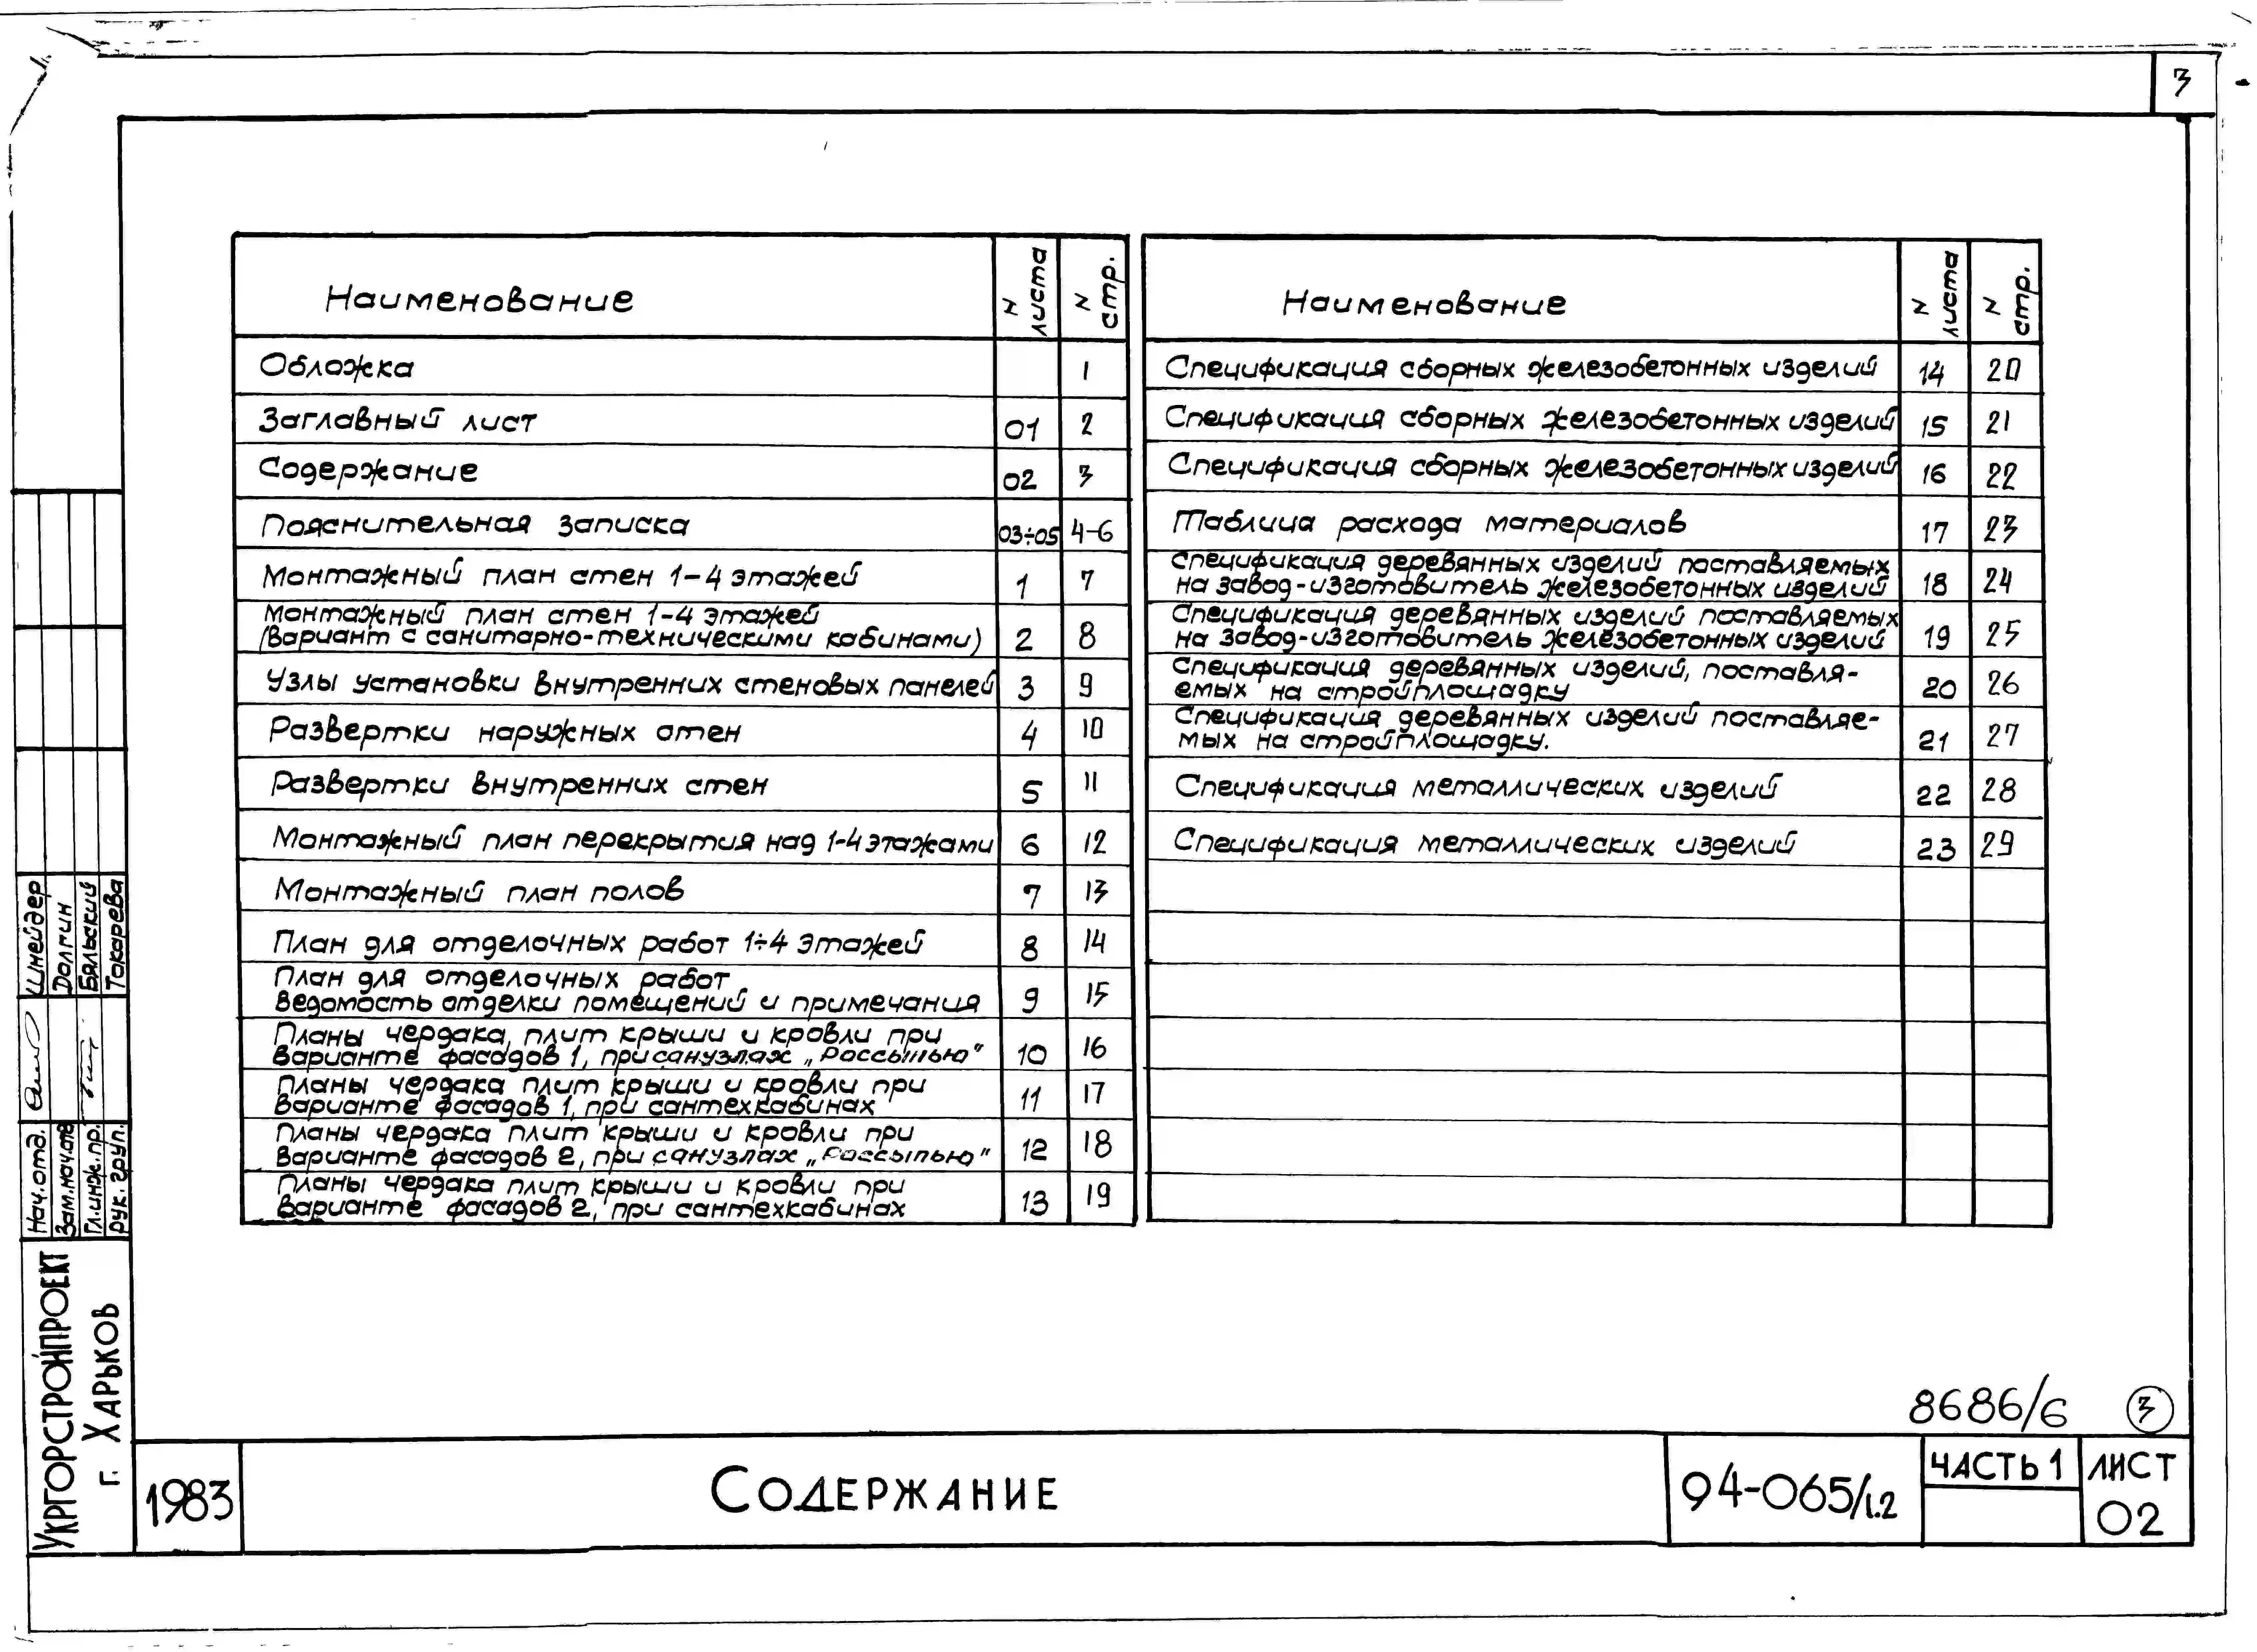 3
Наименование
N листа
N стр.
Обложка 1
Заглавный лист 01 2
Содержание 02 3
Пояснительная записка 03÷05 4-6
Монтажный план стен 1-4 этажей 1 7
Монтажный план стен 1-4 этажей
(Вариант с санитарно-техническими кабинами) 2 8
Узлы установки внутренних стеновых панелей 3 9
Развертки наружных стен 4 10
Развертки внутренних стен 5 11
Монтажный план перекрытия над 1-4 этажами 6 12
Монтажный план полов 7 13
План для отделочных работ 1÷4 этажей 8 14
План для отделочных работ
Ведомость отделки помещений и примечания 9 15
Планы чердака, плит крыши и кровли при
варианте фасадов 1, при санузлах „Россыпью" 10 16
Планы чердака плит крыши и кровли при
варианте фасадов 1, при сантехкабинах 11 17
Планы чердака плит крыши и кровли при
варианте фасадов 2, при санузлах „Россыпью" 12 18
Планы чердака плит крыши и кровли при
варианте фасадов 2, при сантехкабинах 13 19
Наименование
N листа
N стр.
Спецификация сборных железобетонных изделий 14 20
Спецификация сборных железобетонных изделий 15 21
Спецификация сборных железобетонных изделий 16 22
Таблица расхода материалов 17 23
Спецификация деревянных изделий поставляемых
на завод-изготовитель железобетонных изделий 18 24
Спецификация деревянных изделий поставляемых
на завод-изготовитель железобетонных изделий 19 25
Спецификация деревянных изделий, поставля-
емых на стройплощадку 20 26
Спецификация деревянных изделий поставляе-
мых на стройплощадку. 21 27
Спецификация металлических изделий 22 28
Спецификация металлических изделий 23 29
Нач.отд. Шнейдер
Зам.нач.отд Долгин
Гл.инж.пр. Бяльский
рук. груп. Токарева
Укргорстройпроект
г. Харьков
8686/6 3
1983
Содержание
94-065/1.2
Часть 1
Лист
02